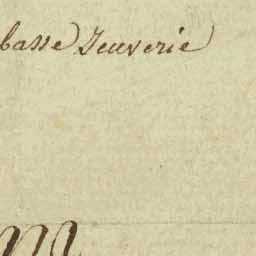 basse Jeuverie
m